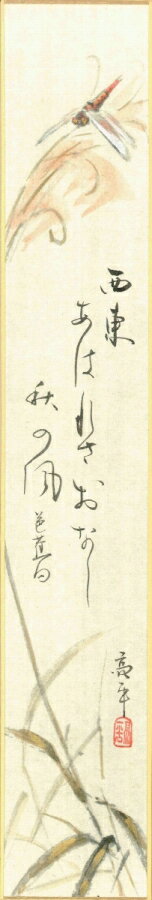 西東
あはれさおなし
秋の風
芭蕉句
高平